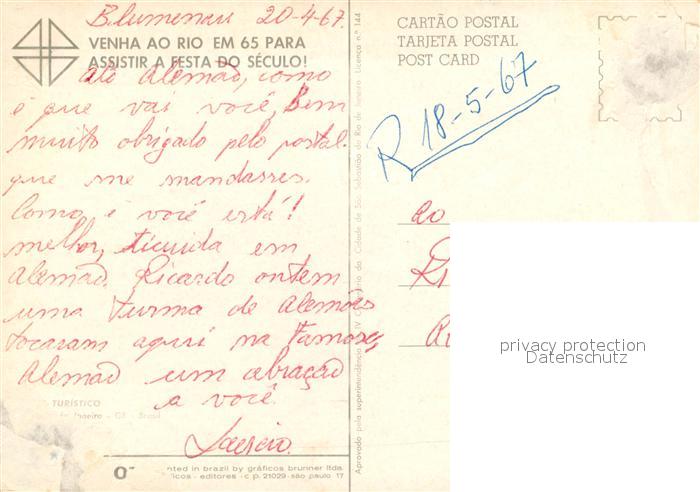 Blumenau 20-4-67.
VENHA AO RIO EM 65 PARA
ASSISTIR A FESTA DO SÉCULO!
alô Alemão, como
é que vai você, Bem
muito obrigado pelo postal.
que me mandasses.
Como é você está!
melhor, em
alemão. Ricardo ontem
uma turma de Alemães
tocaram aqui na
Alemão um abração
a você.
TURÍSTICO
Janeiro - GB - Brasil
nted in brazil by gráficos brunner ltda.
icos - editores - c p. 21029 - são paulo 17
Aprovado pela superintendência IV Centenário da Cidade de São Sebastião do Rio de Janeiro - Licença n.º 144
CARTÃO POSTAL
TARJETA POSTAL
POST CARD
R 18-5-67
ao
privacy protection
Datenschutz